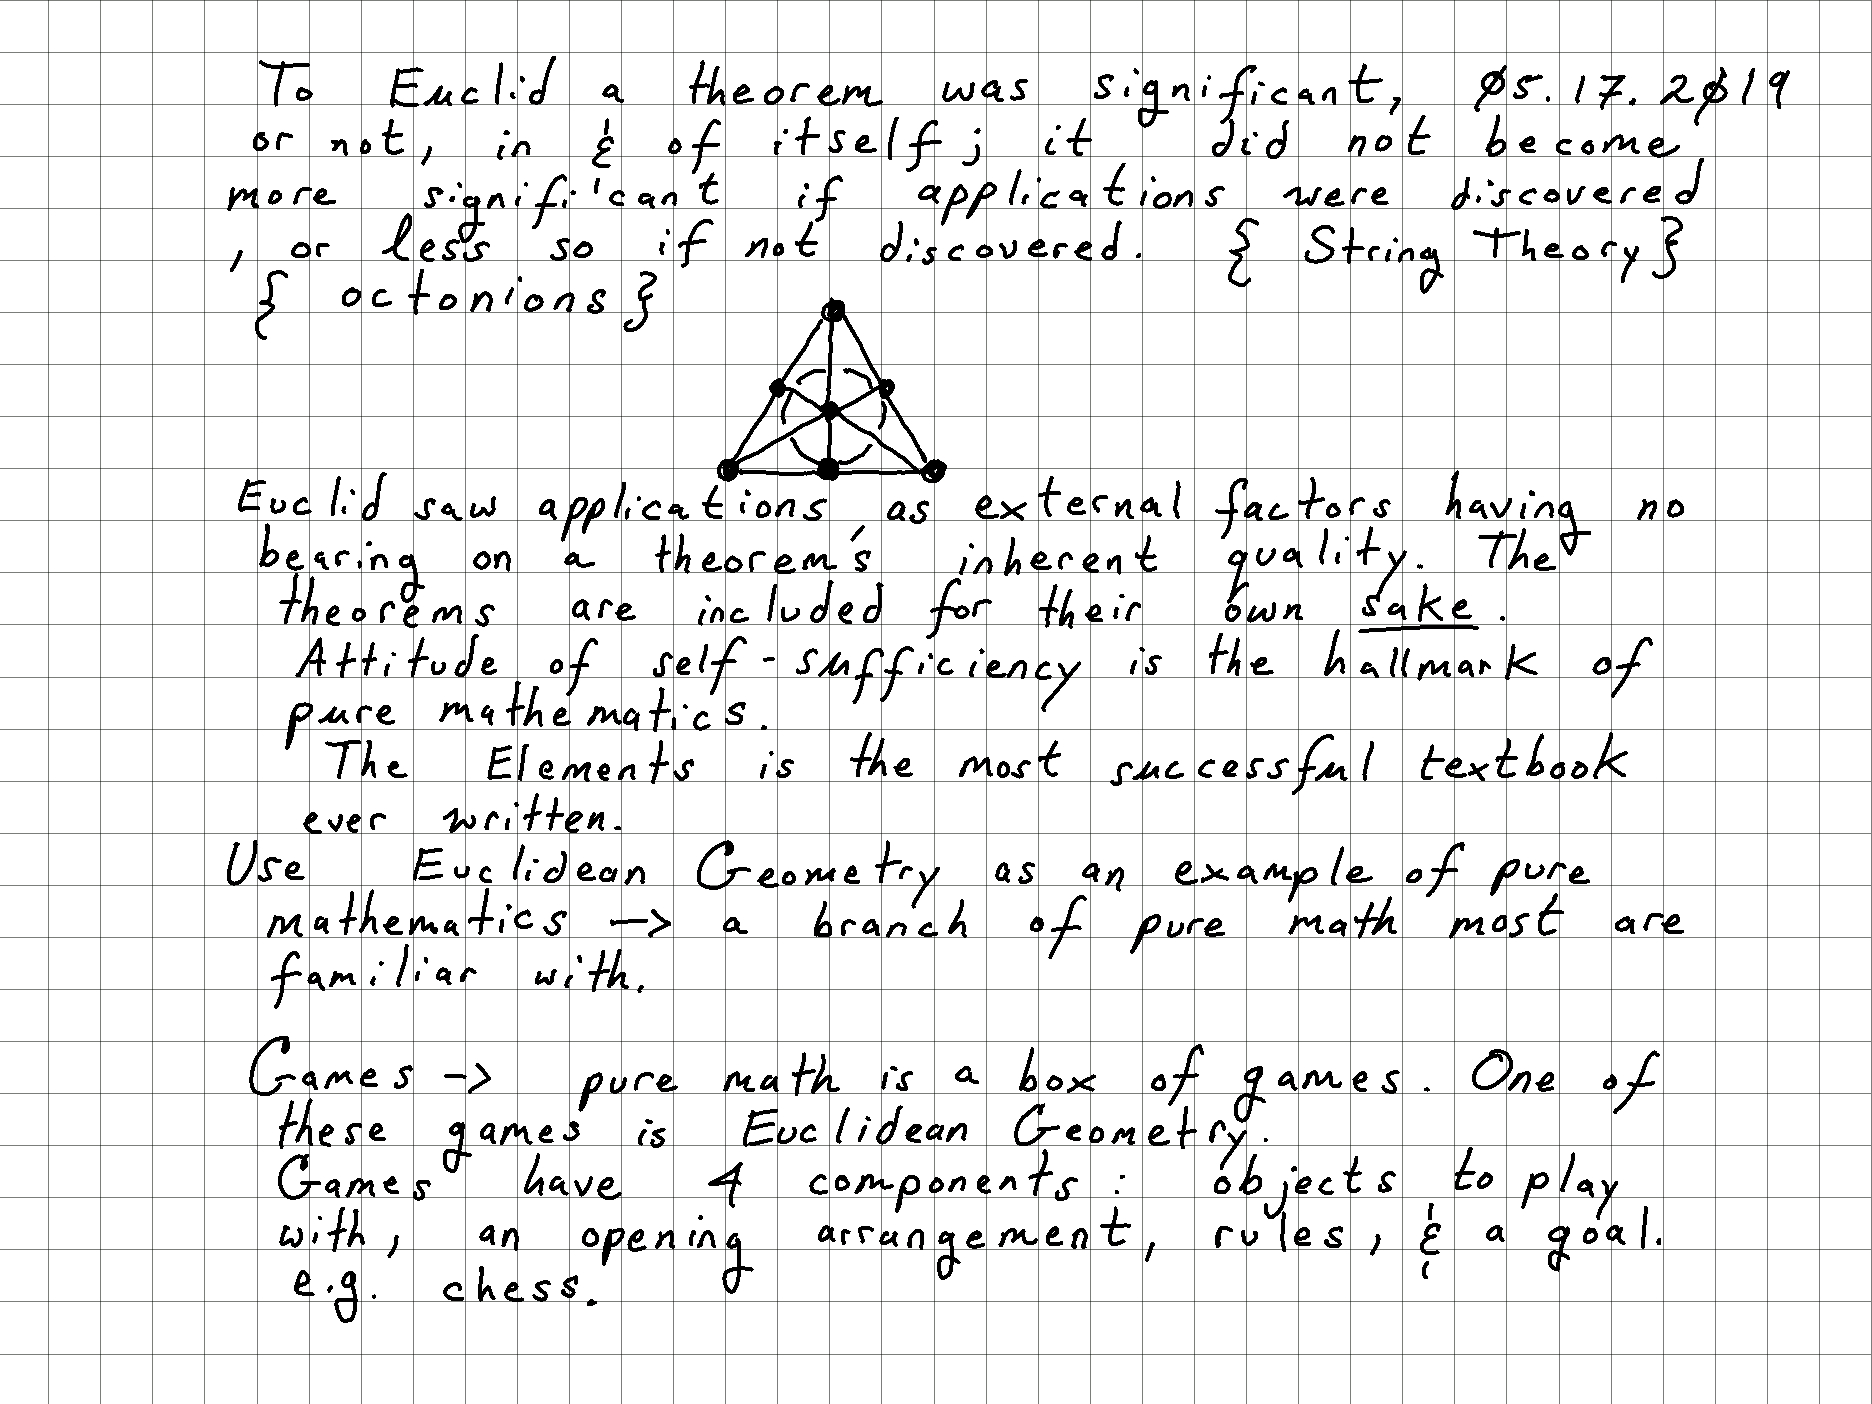 To Euclid a theorem was significant, 05.17.2019
or not, in & of itself; it did not become
more significant if applications were discovered
, or less so if not discovered. { String Theory }
{ octonions }
Euclid saw applications as external factors having no
bearing on a theorem's inherent quality. The
theorems are included for their own sake.
Attitude of self-sufficiency is the hallmark of
pure mathematics.
The Elements is the most successful textbook
ever written.
Use Euclidean Geometry as an example of pure
mathematics -> a branch of pure math most are
familiar with.
Games -> pure math is a box of games. One of
these games is Euclidean Geometry.
Games have 4 components: objects to play
with, an opening arrangement, rules, & a goal.
e.g. chess.